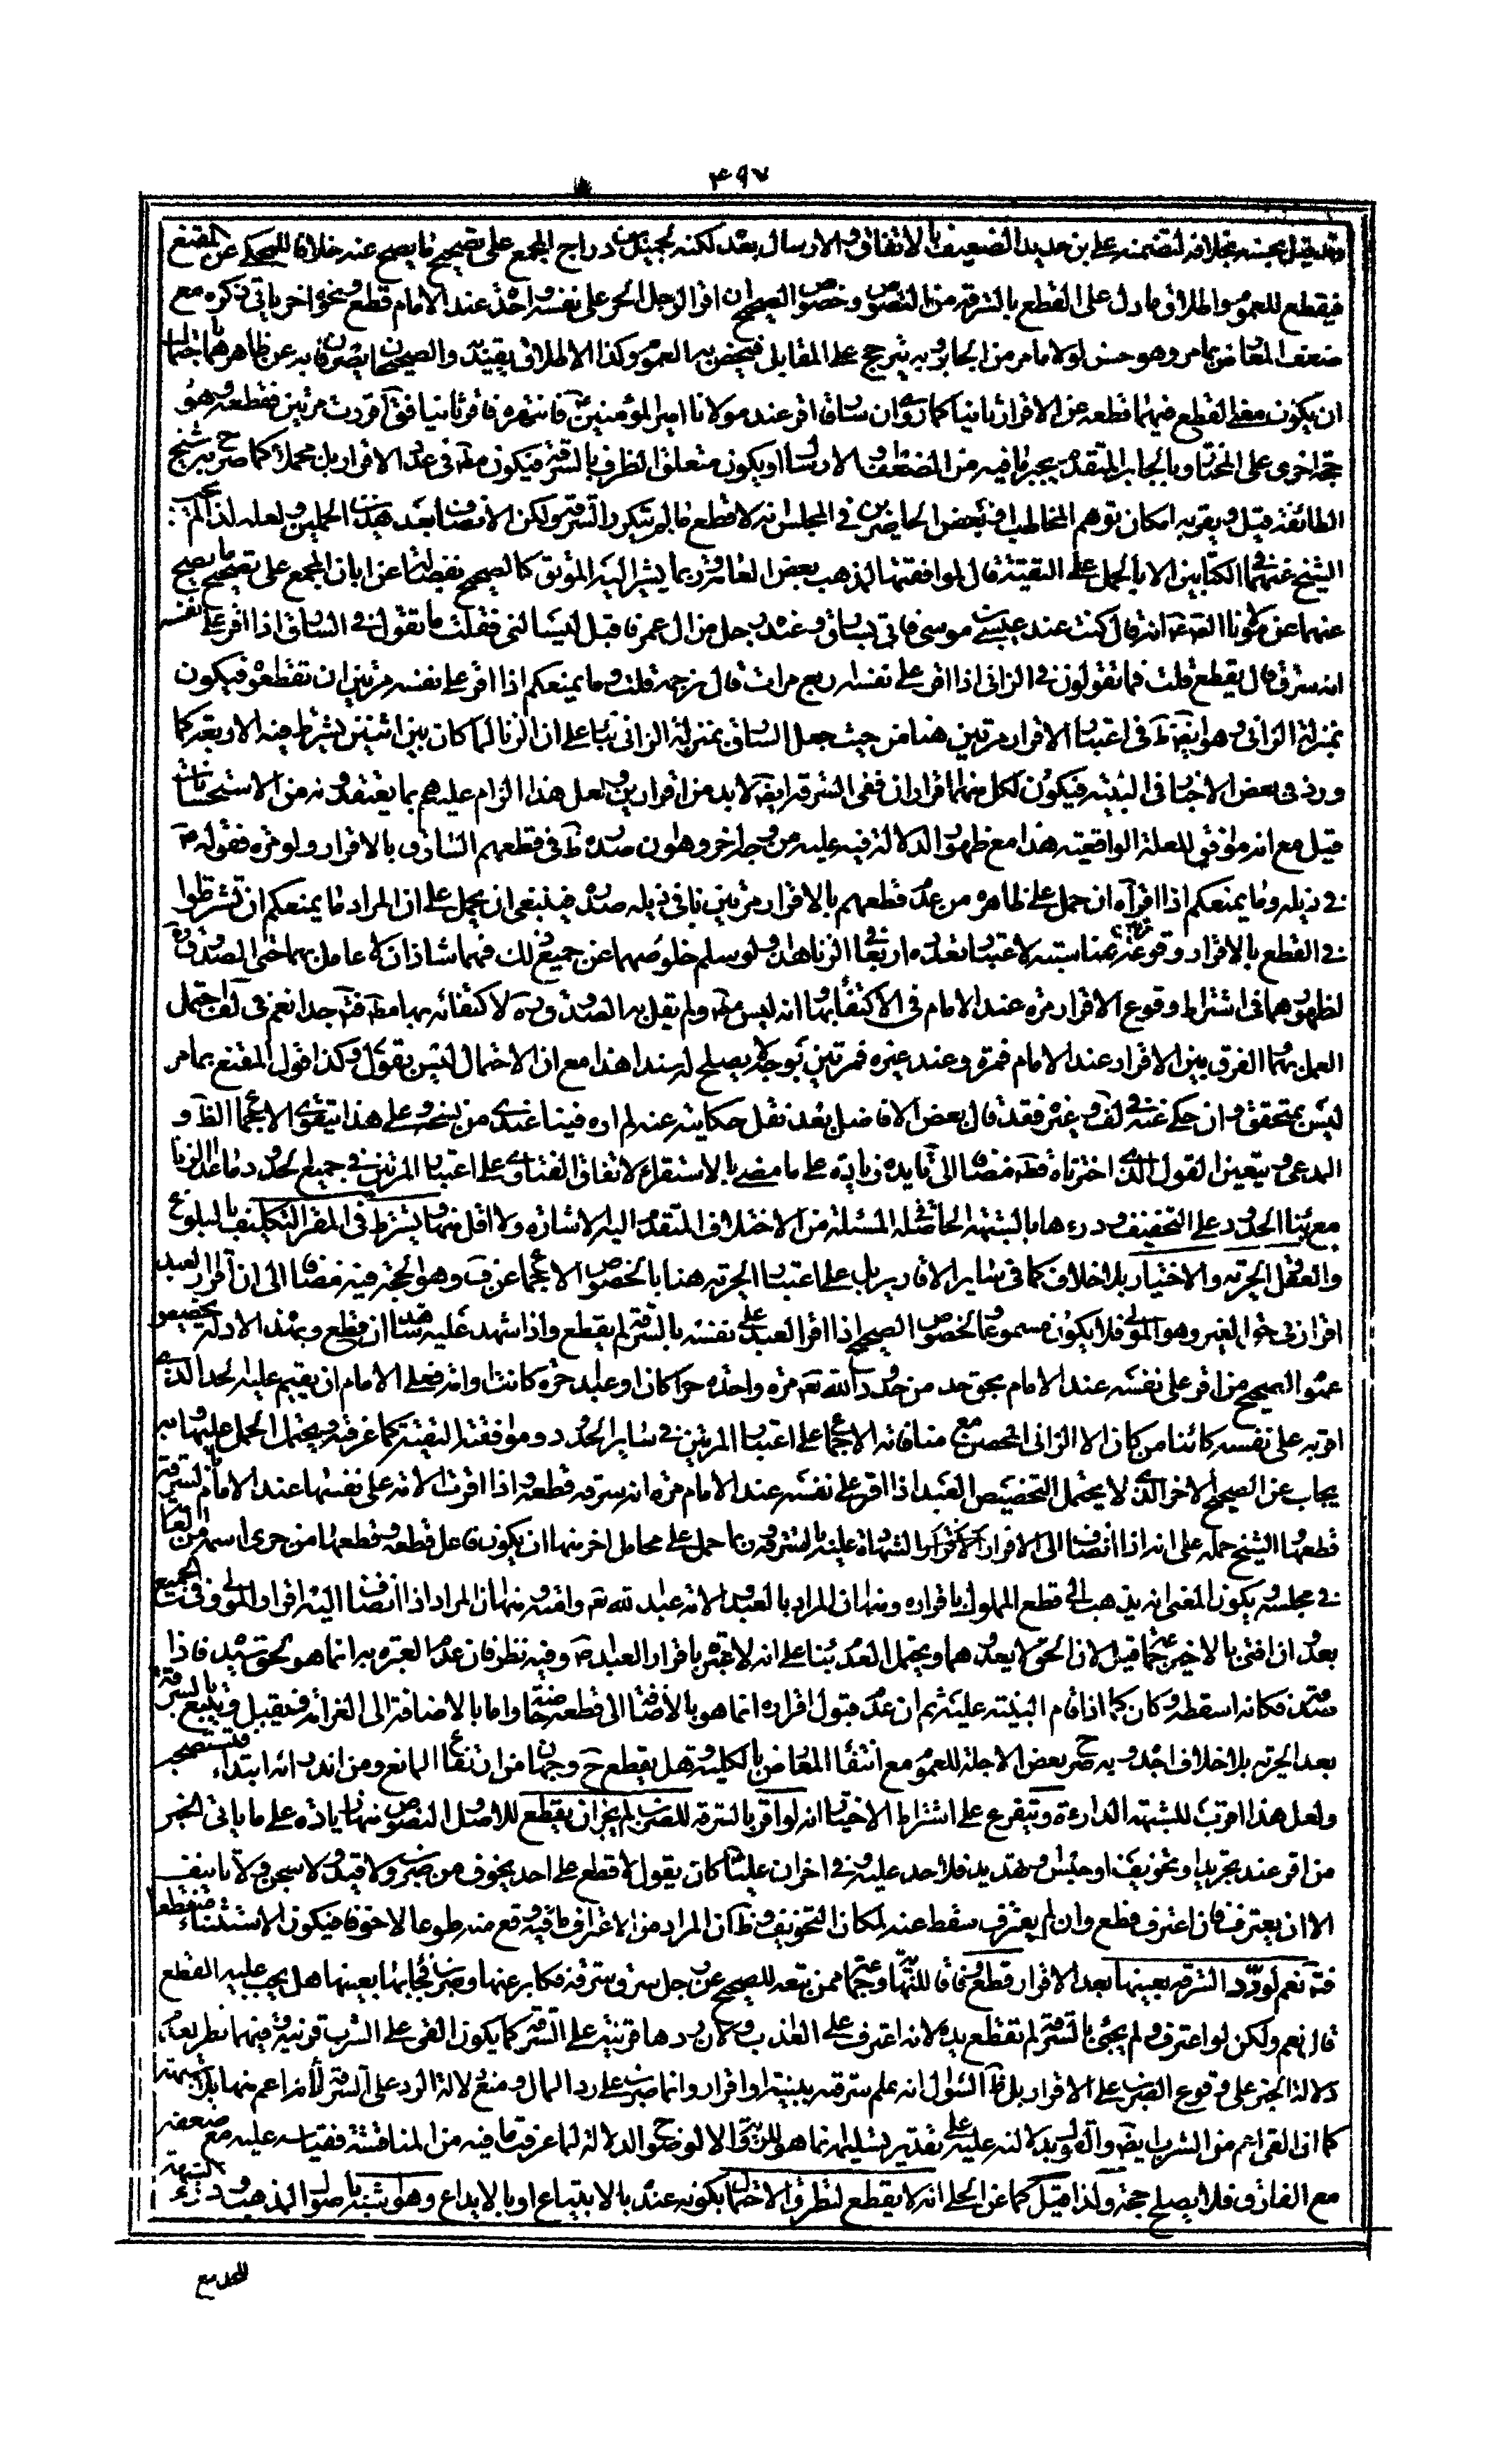 ٤٩٧
بجنسه بخلافه لتضمنه علي بن حديد الضعيف بالاتفاق والارسال بعد لكنه لجميل بن دراج المجمع على تصحيح ما يصح عنه خلافا للمحكي عن المقنع
فيقطع للعموم واطلاق ما دل على القطع بالسرقة من النصوص وخصوص الصحيح ان اقر الرجل الحر على نفسه مرة واحدة عند الامام قطع ونحوه اخر ياتي ذكره مع
ضعف المعارض بما مر وهو حسن لولا ما مر من الجابر وبه يترجح على المقابل فيخص به العموم وكذا الاطلاق يقيد به والصحيحان يصرفان به عن ظاهرهما باحتمال
ان يكون معنى القطع فيهما قطعه عن الاقرار ثانيا كما روي ان سارقا اقر عند مولانا امير المؤمنين ع فانتهره فاقر ثانيا فقال اقررت مرتين فقطعه وهو
حجة اخرى على المختار وبالجابر المتقدم يجبر ما فيه من الضعف والارسال او يكون متعلق الظرف بالسرقة فيكون في عدد الاقرار بل مجملا كما صرح به شيخ
الطائفة قيل ويقربه امكان توهم المخاطب او بعض الحاضرين في المجلس انه لا قطع ما لم يتكرر السرقة ولكن الانصاف بعد هذين الحملين ولعله لذا لم يجب
الشيخ عنهما في الكتابين الا بالحمل على التقية قال لموافقتها لمذهب بعض العامة وربما يشير اليه الموثق كالصحيح بفضالة عن ابان المجمع على تصحيح ما يصح
عنهما عن مولانا الصادق ع انه قال كنت عند عيسى بن موسى فاتي بسارق وعنده رجل من ال عمر فاقبل ليسالني فقلت ما تقول في السارق اذا اقر على نفسه
انه سرق قال يقطع قلت فما تقولون في الزاني اذا اقر على نفسه اربع مرات قال نرجمه قلت وما يمنعكم اذا اقر على نفسه مرتين ان تقطعوه فيكون
بمنزلة الزاني وهو ايضا في اعتبار الاقرار مرتين هنا من حيث جعل السارق بمنزلة الزاني بناء على ان الزنا لما كان بين اثنين يشترط فيه الاربعة كما
ورد في بعض الاخبار في البينة فيكون لكل منهما اقراران ففي السرقة ايضا لا بد من اقرارين ولعل هذا الزام عليهم بما يعتقدونه من الاستحسانات
قيل مع انه موافق للعلة الواقعية هذا مع ظهور الدلالة فيه عليه من وجه اخر وهو ان صدره في قطعهم السارق بالاقرار ولو مرة فقوله
في ذيله وما يمنعكم اذا اقر ان حمل على ظاهره من عدم قطعهم بالاقرار مرتين نافى ذيله صدره فينبغي ان يحمل على ان المراد ما يمنعكم ان تشترطوا
في القطع بالاقرار وقوعه مرتين بمناسبة لاعتبار تعدده اربعا في الزنا هذا ولو سلم خلوصهما عن جميع ذلك فهما شاذان لا عامل بهما حتى الصدوق
لظهورهما في اشتراط وقوع الاقرار مرة عند الامام في الاكتفاء بها انه ليس ولم يقل به الصدوق ره لاكتفائه بها جدا نعم في لف احتمل
العمل بهما والفرق بين الاقرار عند الامام فمرة وعند غيره فمرتين بوجه لا يصلح له سندا هذا مع ان الاحتمال ليس بقول وكذا قول المقنع بما مر
ليس بمتحقق وان حكي عنه في لف وغيره فقد قال بعض الافاضل بعد نقل حكايته عنه لم اره فيما عندي من نسخه وعلى هذا يتقوى الاجماع الظ و
المدعى ويتعين القول الذي اخترناه قطعا مضافا الى تايده زيادة على ما مضى بالاستقراء لاتفاق الفتاوى على اعتبار المرتين في جميع الحدود ما عدا الزنا
مع بناء الحدود على التخفيف ودرءها بالشبهة الحاصلة في المسئلة من الاختلاف المتقدم اليه الاشارة ولا اقل منها ويشترط في المقر التكليف بالبلوغ
والعقل والحرية والاختيار بلا خلاف كما في سائر الاقارير بل على اعتبار الحرية هنا بالخصوص الاجماع عن ف وهو الحجة فيه مضافا الى ان اقرار العبد
اقرار في حق الغير وهو المولى فلا يكون مسموعا وخصوص الصحيح اذا اقر العبد على نفسه بالسرقة لم يقطع واذا شهد عليه شاهدان قطع وبهذه الادلة يخصص
عموم الصحيح من اقر على نفسه عند الامام بحق حد من حدود الله تعالى مرة واحدة حرا كان او عبدا حرة كانت او امة فعلى الامام ان يقيم عليه الحد الذي
اقر به على نفسه كائنا من كان الا الزاني المحصن مع منافاته الاجماع على اعتبار المرتين في سائر الحدود وموافقته التقية كما عرفته ويحتمل الحمل عليها وبه
يجاب عن الصحيح الاخر الذي لا يحتمل التخصيص العبد اذا اقر على نفسه عند الامام مرة انه سرق قطعه واذا اقرت الامة على نفسها عند الامام بالسرقة
قطعها الشيخ حمله على انه اذا انضاف الى الاقرار الشهادة عليه بالسرقة وربما حمل على محامل اخر منها ان يكون فاعل قطعه وقطعها من جرى اسمه من العامة
في مجلسه ويكون المعنى انه يذهب الى قطع المملوك باقراره ومنها ان المراد بالعبد والامة عبد الله تعالى وامته ومنها ان المراد اذا انضاف اليه اقرار المولى وفي الجميع
بعد وان افتى بالاخير جماعة قيل لان الحق لا يعدوهما ويحتمل العدم بناء على انه لا عبرة باقرار العبد وفيه نظر فان عدم العبرة به انما هو لحق سيده فاذا
صدقه فكانه اسقطه وكان كما اذا قام البينة عليه ثم ان عدم قبول اقراره انما هو بالاضافة الى قطعه خاصة واما بالاضافة الى الغرامة فيقبل ويتبع بالسرقة
بعد الحرية بلا خلاف اجده وبه صرح بعض الاجلة للعموم مع انتفاء المعارض بالكلية وهل يقطع ح وجهان من ارتفاع المانع ومن اندرائه ابتداء فيستصحب
ولعل هذا اقرب للشبهة الدارءة ويتفرع على اشتراط الاختيار انه لو اقر بالسرقة للضرب لم يجز ان يقطع للاصل والنصوص منها زيادة على ما ياتي الخبر
من اقر عند تجريد او تخويف او حبس او تهديد فلا حد عليه وفي اخر ان عليا ع كان يقول لا قطع على احد يخوف من ضرب ولا قيد ولا سجن ولا تعنيف
الا ان يعترف فان اعترف قطع وان لم يعترف سقط عنه لمكان التخويف وظ ان المراد من الاعتراف ما فيه وقع منه طوعا لا خوفا فيكون الاستثناء منقطعا
نعم لو رد السرقة بعينها بعد الاقرار قطع وفاقا للنهاية وجماعة ممن تبعه للصحيح عن رجل سرق سرقة فكابر عنها وضرب فجاء بها بعينها هل يجب عليه القطع
قال نعم ولكن لو اعترف ولم يجئ بالسرقة لم تقطع يده لانه اعترف على العذاب ولان ردها قرينة على السرقة كما يكون القي على الشرب قرينة وفيهما نظر لعدم
دلالة الخبر على وقوع الضرب على الاقرار بل ظ السؤال انه علم سرقته ببينة او اقرار وانما ضرب على رد المال ومنع دلالة الرد على السرقة لانه اعم منها بلا شبهة
كما ان القي اعم من الشرب ايضا والقول بدلالته عليه على تقدير تسليمه انما هو للرواية والا لوضوح الدلالة لما عرفت ما فيه من المناقشة فقياسه عليه مع ضعفه
مع الفارق فلا يصلح حجة ولذا قيل كما عن الحلي انه لا يقطع لتطرق الاحتمال بكونه عنده بالابتياع او بالايداع وهو اشبه باصول المذهب ودرء الشبهة
للحد مع